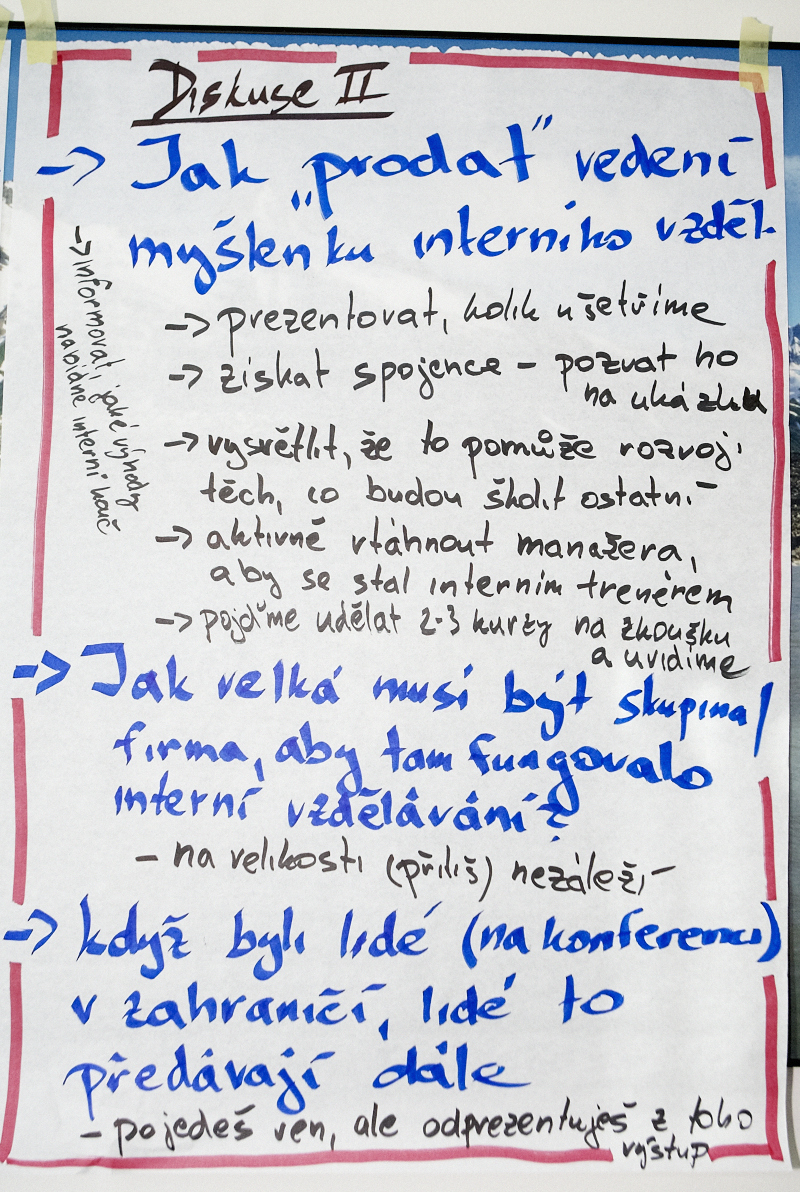 Diskuse II
-> Jak "prodat" vedení
myšlenku interního vzděl.
-> prezentovat, kolik ušetříme
-> získat spojence - pozvat ho
na ukázku
-> vysvětlit, že to pomůže rozvoji
těch, co budou školit ostatní
-> aktivně vtáhnout manažera,
aby se stal interním trenérem
-> pojďme udělat 2-3 kurzy na zkoušku
a uvidíme
-> informovat, jaké výhody
nabídne interní kouč
-> Jak velká musí být skupina/
firma, aby tam fungovalo
interní vzdělávání?
- na velikosti (příliš) nezáleží
-> když byli lidé (na konferenci)
v zahraničí, lidé to
předávají dále
- pojedeš ven, ale odprezentuješ z toho
výstup